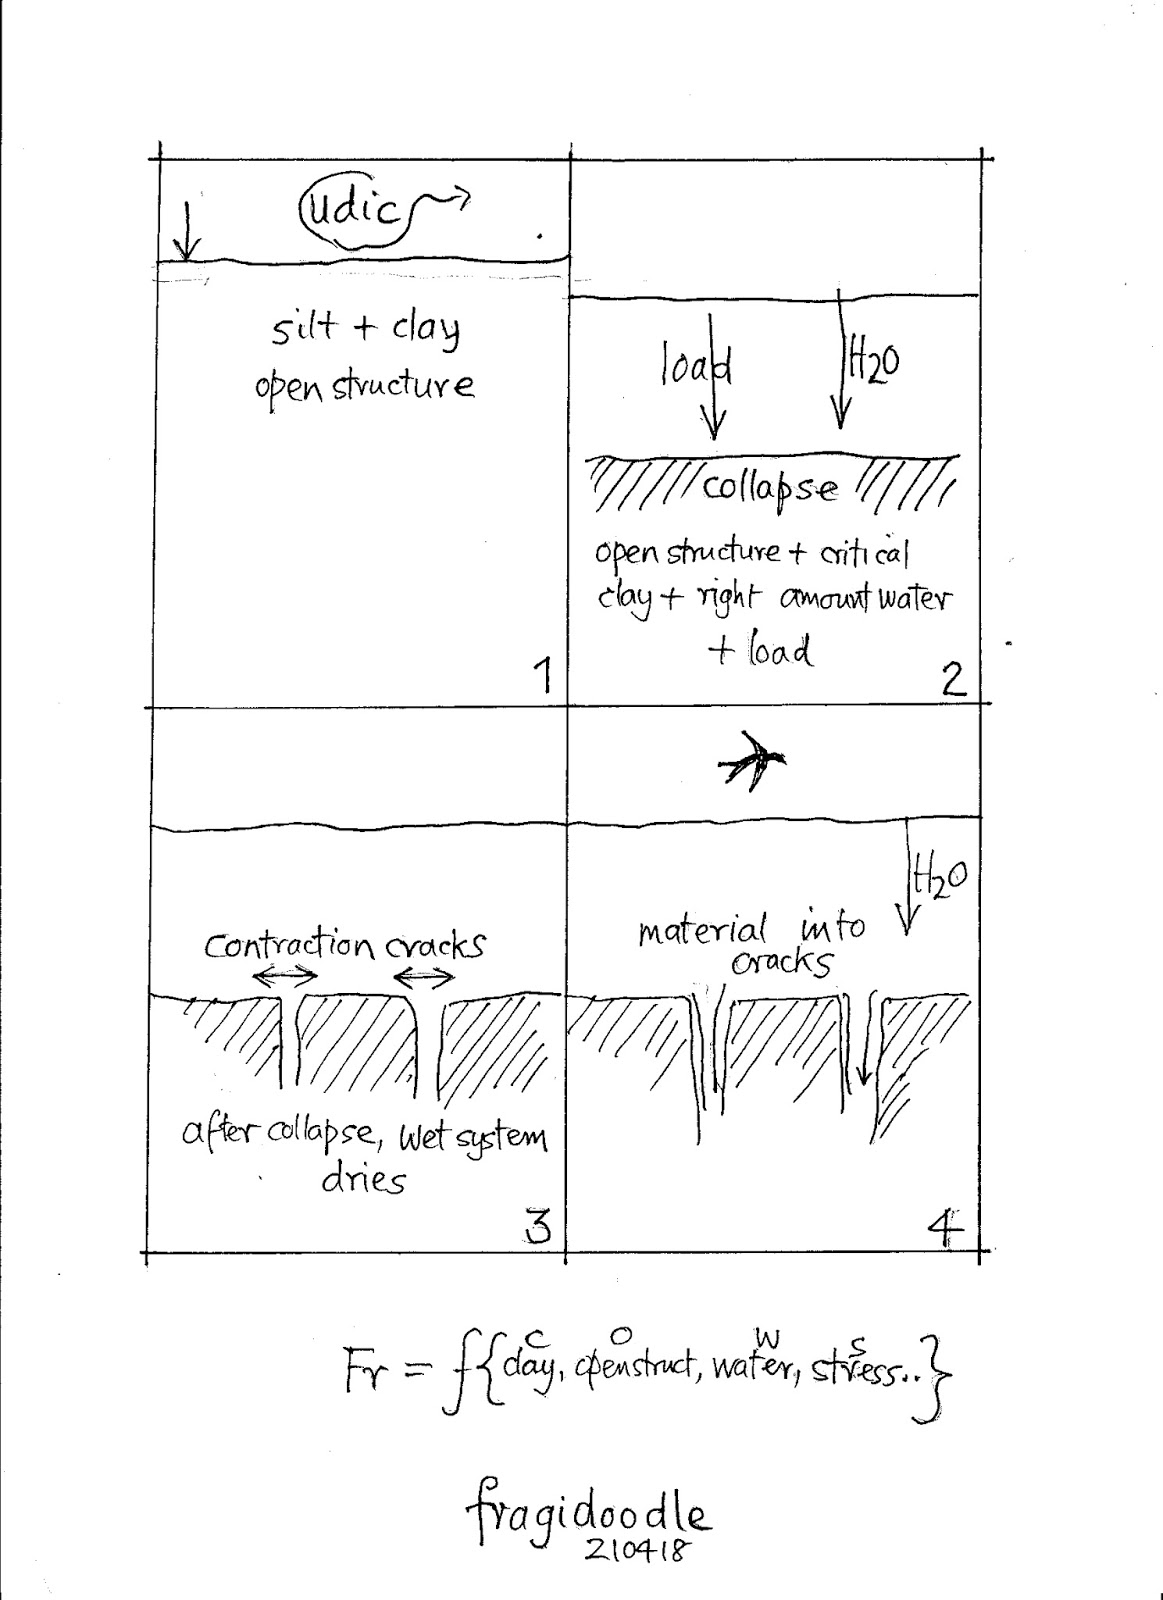 udic
silt + clay
open structure
1
load
H2O
collapse
open structure + critical
clay + right amount water
+ load
2
contraction cracks
after collapse, wet system
dries
3
H2O
material into
cracks
4
C O W S
Fr = f{clay, openstruct, water, stress..}
fragidoodle
210418